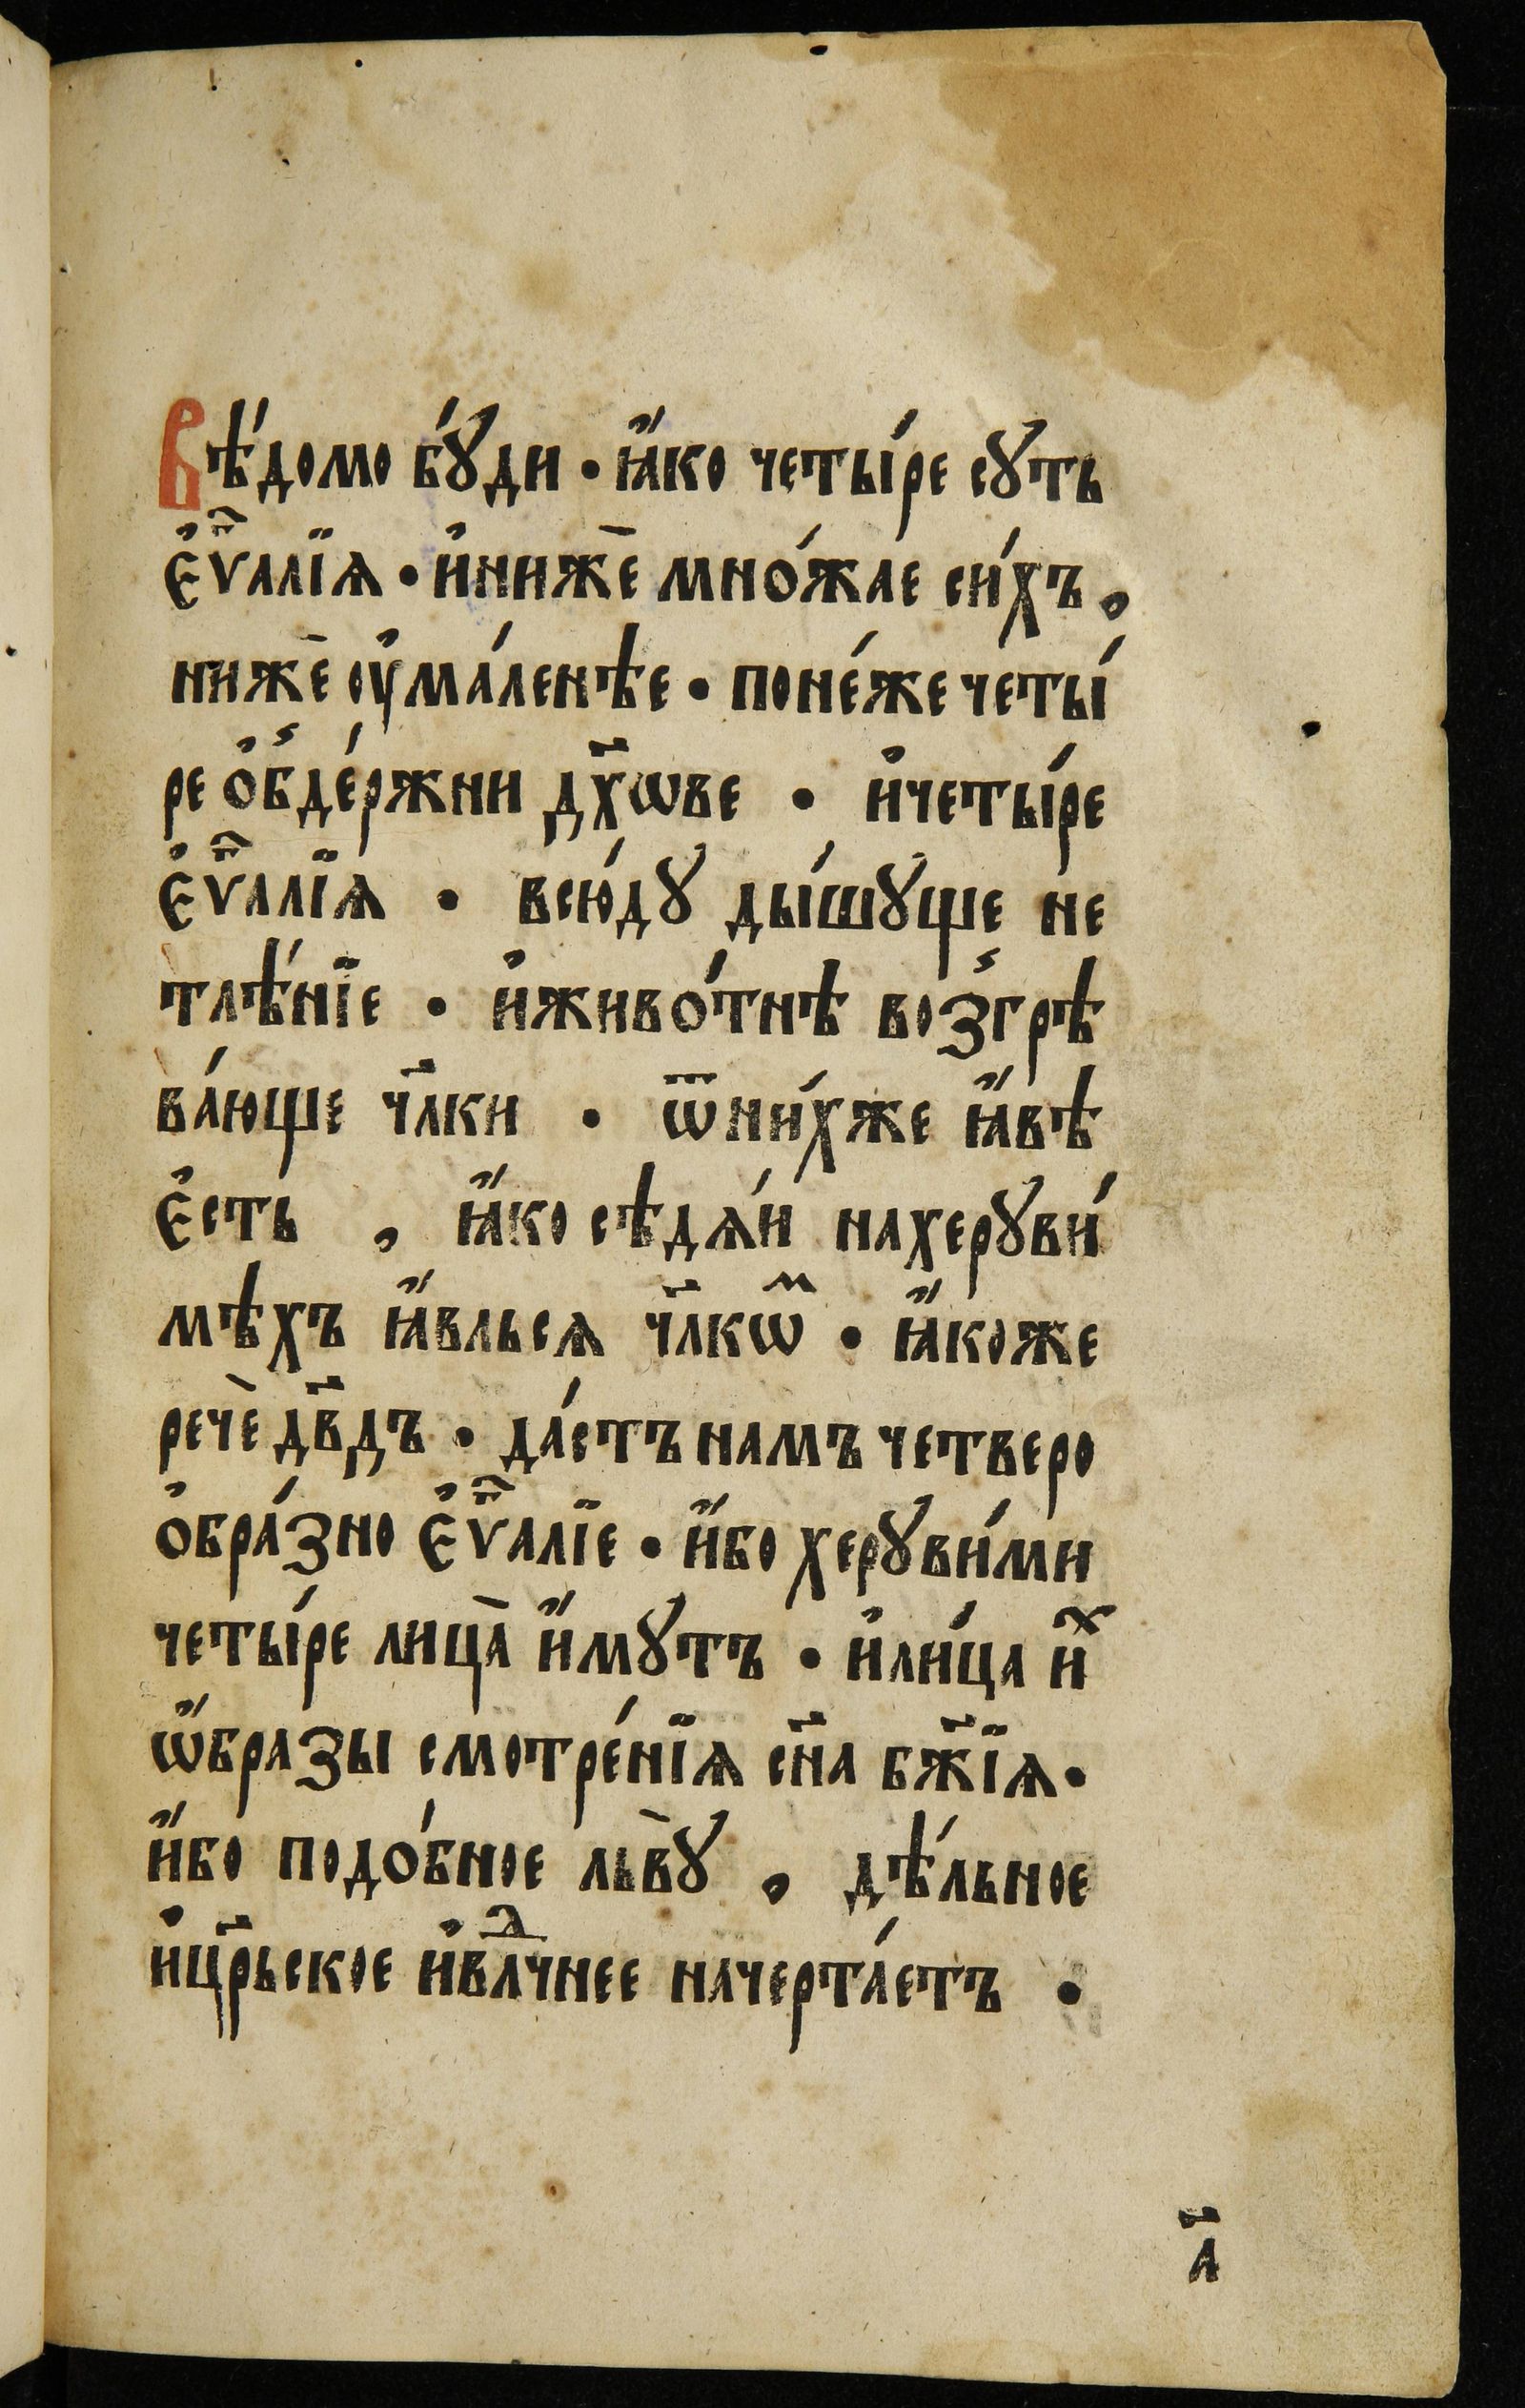 Вѣ́домо бꙋ́ди · ꙗ҆́ко четы́ре сꙋть
є҆ѵⷢ҇алїѧ · и҆нижѐ мно́жае си́хъ ,
нижѐ оу҆ма́ленѣе · поне́же четы́
ре ѻ҆б̾де́ржни дх҃ѡве · и҆четы́ре
є҆ѵⷢ҇алїѧ · всю́дꙋ ды́шꙋще не
тлѣ́нїе · и҆живо́тнѣ воз̾грѣ
ва́юще чл҃ки · ѿни́хже ꙗ҆́вѣ
є҆сть , ꙗ҆́ко сѣдѧ́и нахерꙋви́
мѣхъ ꙗ҆́вльсѧ чл҃кѡⷨ · ꙗ҆́коже
речѐ дв҃дъ · да́стъ намъ четверо
ѻ҆бра́зно є҆ѵⷢ҇алїе · и҆́бо херꙋви́ми
четы́ре лица̀ и҆́мꙋтъ · и҆ли́ца иⷯ
ѡ҆́бразы смотре́нїѧ сн҃а бж҃їѧ ·
и҆́бо подо́бное льв̀ꙋ , дѣ́льное
и҆цр҃ьское и҆влⷣчнее начерта́етъ ·
а҃